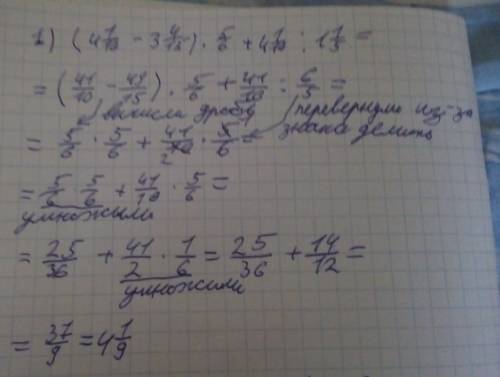 1) (4 1/10 - 3 4/15) · 5/6 + 4 1/10 : 1 1/5 =
= (41/10 - 49/15) · 5/6 + 41/10 : 6/5 =
вычисл дробь перевернули из-за
= 5/6 · 5/6 + 41/10 · 5/6 = знака делить
2
= 5/6 · 5/6 + 41/10 · 5/6 =
умножили
= 25/36 + 41/2 · 1/6 = 25/36 + 14/12 =
умножили
= 37/9 = 4 1/9